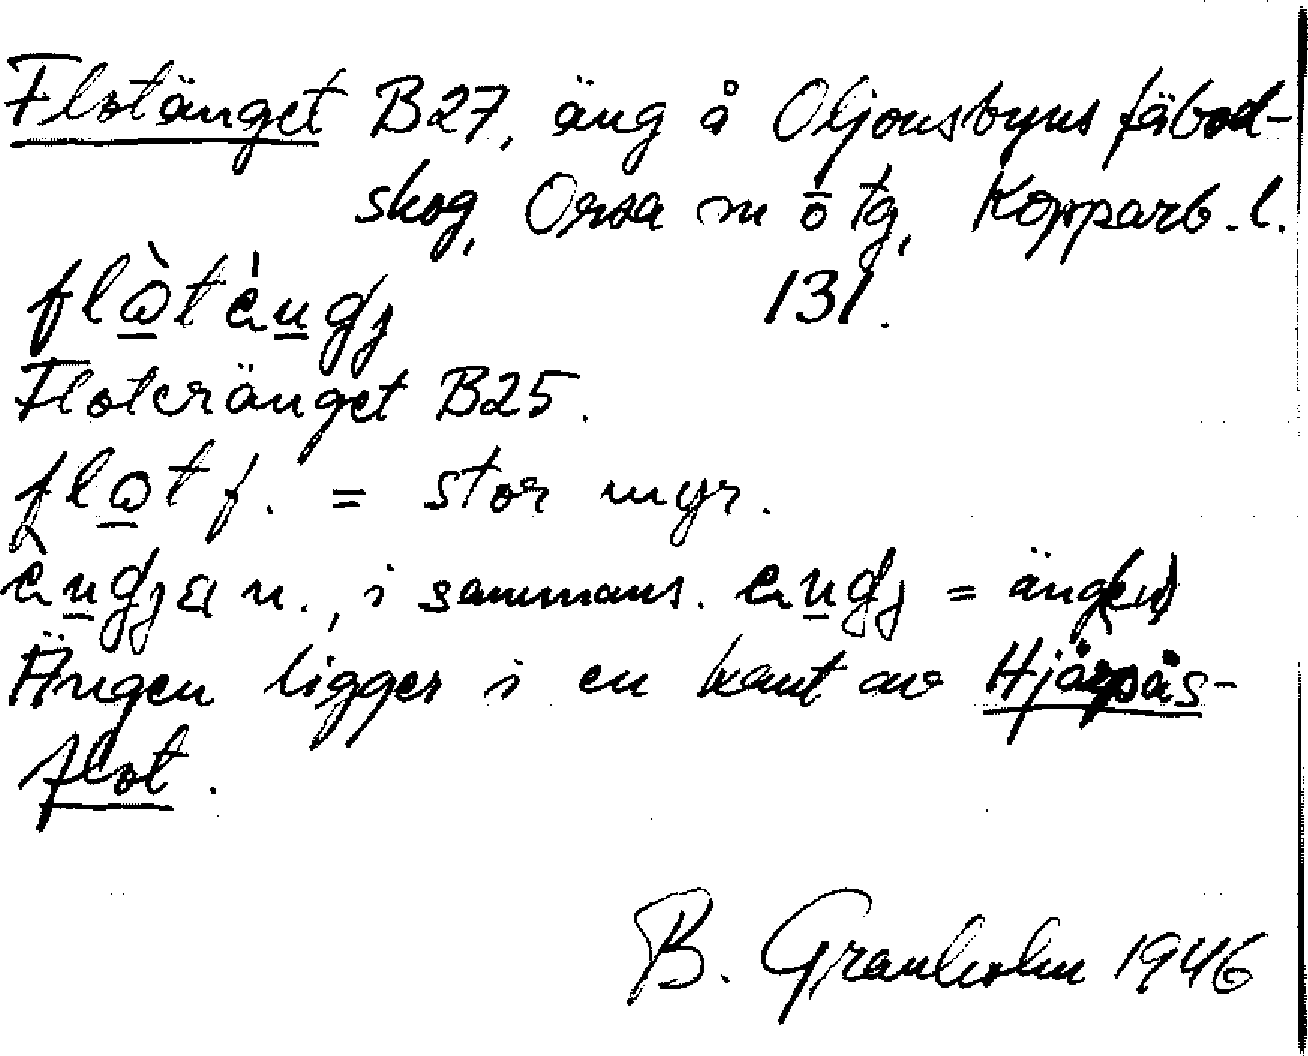 Flotänget B27, äng å Oljonsbyns fäbod-
skog, Orsa m ö tg, Kopparb. l.
131.
Floteränget B25.
f. = stor myr.
n., i sammans. = äng(en)
Ängen ligger i en kant av Hjärpås-
flot.
B. Granholm 1946